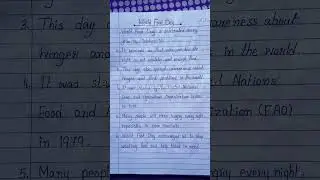 World Food Day
World Food Day is celebrated every
year on
It reminds us that everyone has the
right to eat healthy and enough food.
This day also spread awareness about
hunger and food problems in the world.
It was started by the United Nations
Food and Agriculture Organization (FAO)
in 1979.
Many people still sleep hungry every night,
especially in poor countries.
World Food Day encourages us to stop
wasting food and help those in need.
3. This day a
hunger an
4. It was s
Food and
in 1979.
5. Many peop
areness about
in the world
ed Nations
zation (FAO)
hungry every night,